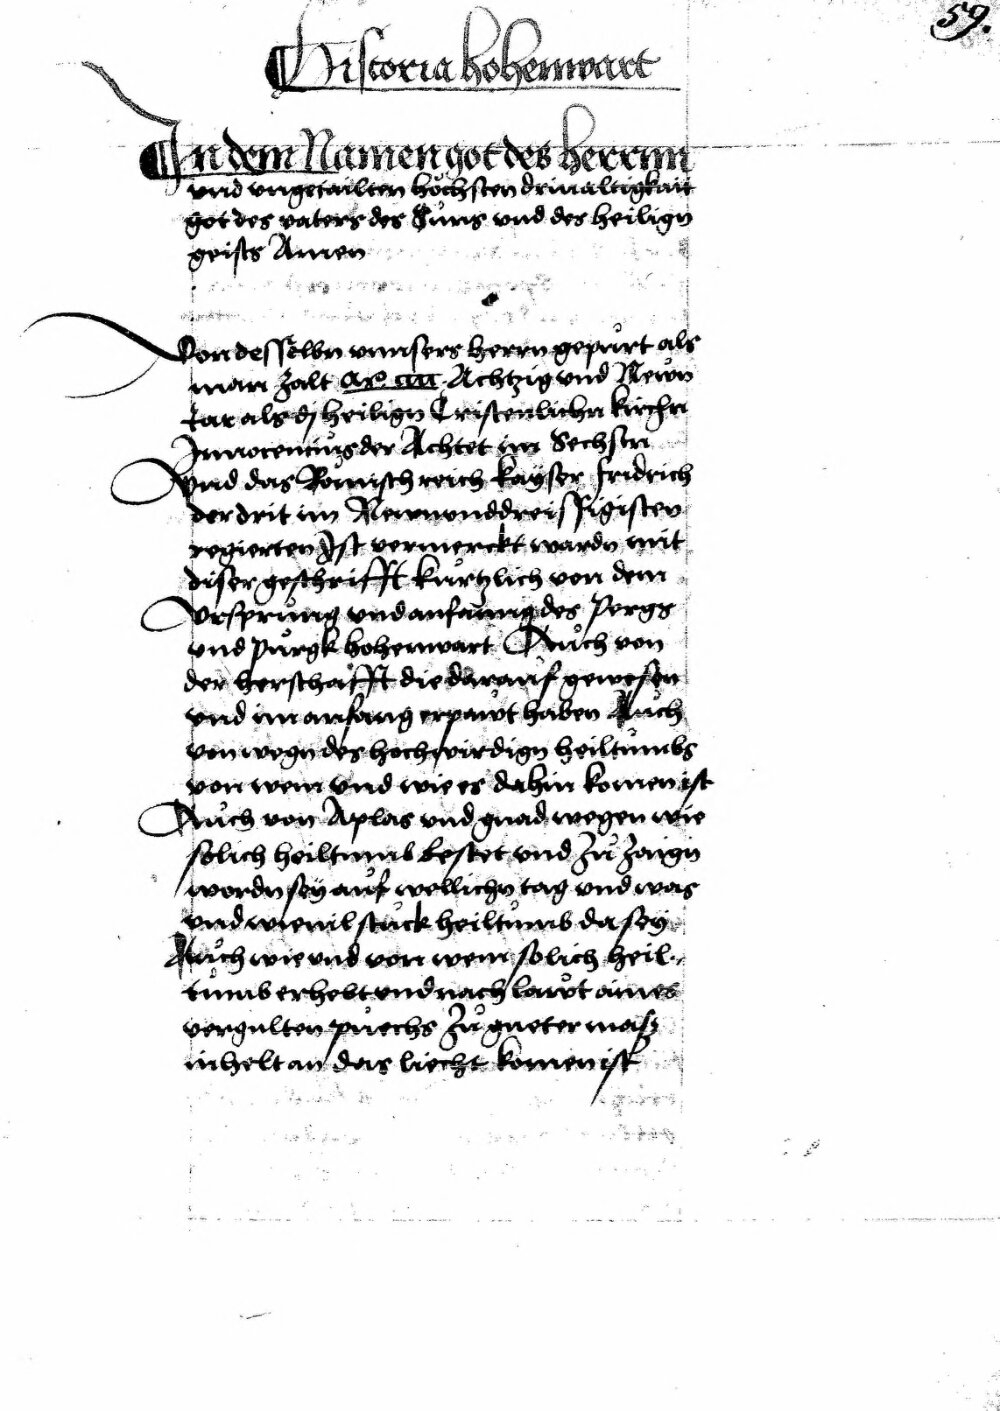 59.
Historia hohenwart
In dem Namen got des herrnn
vnd vngetailten höchsten driualtigkait
got des vaters des Suns vnd des heilign
geists Amen
Von desselbn vnnsers herrn gepůrt als
man zalt Achtzig vnd Newn
Jar als dj heilign Cristenlichn kirchn
Innocencius der Achtet im Sechstn
Vnd das Römisch reich kayser fridrich
der drit im Newnunddreissigisten
regierten Ist vermerckt wardn mit
diser geschrifft kürtzlich von dem
Vrsprung vnd anfanng des Pergs
vnd Pürgk hohenwart Auch von
der herschafft die darauf gewesen
vnd im anfang erpawt haben Auch
von wegn des hochwirdign heiltumbs
von wem vnd wie es dahin komen ist
Auch von Aplas vnd gnad wegen wie
solich heiltumb bestet vnd zu zaign
wordn sey auf wellichn tag vnd was
vnd wieuil stuck heiltumb da sey
Auch wie vnd von wem solich heil-
tumb erhebt vnd nach lawt aines
vergulten puechs zu gueter mass
inhelt an das liecht komen ist